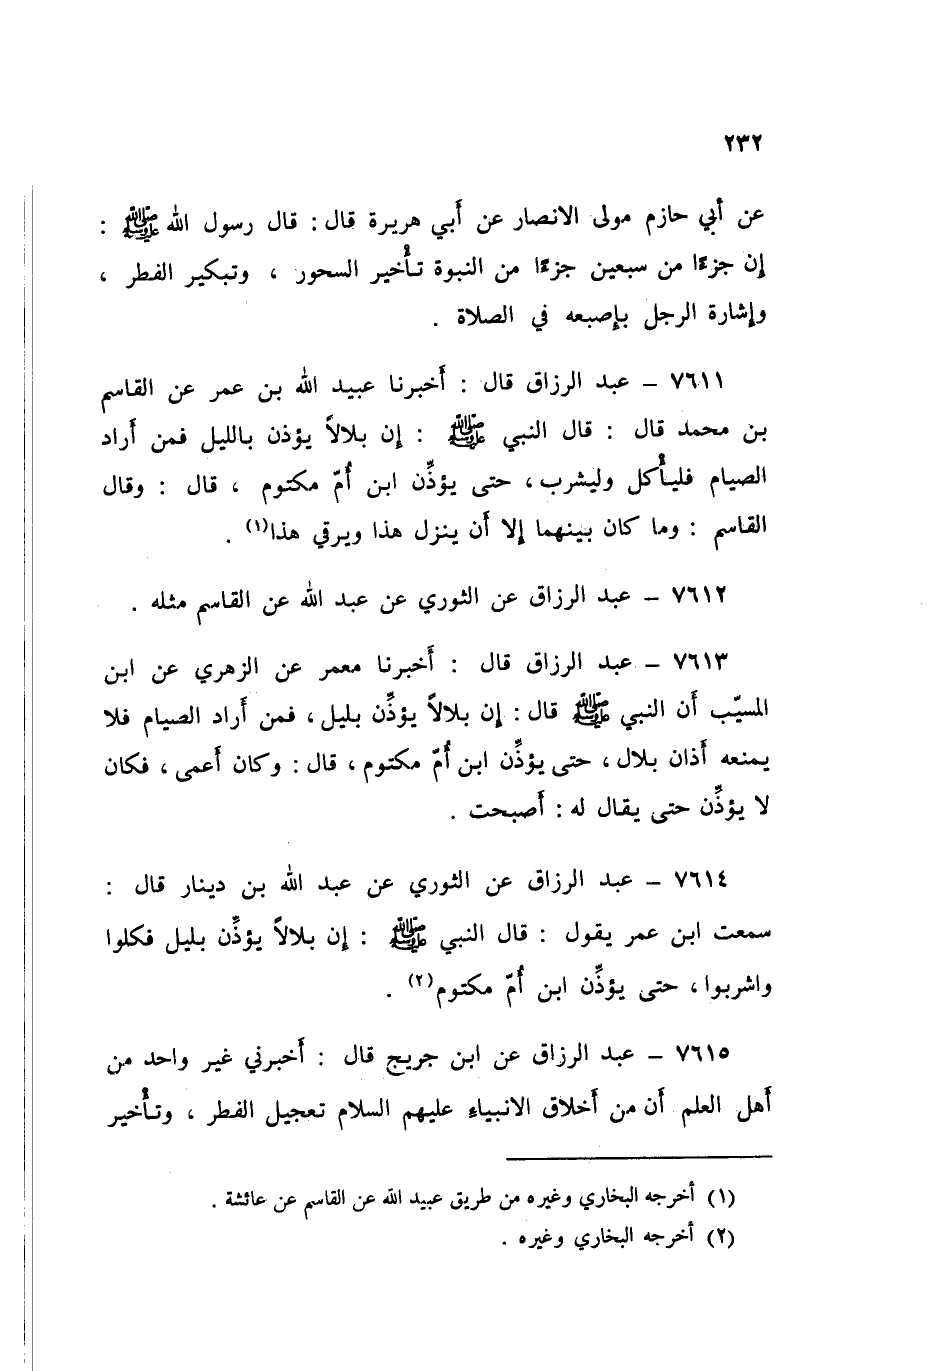 ٢٣٢
عن أبي حازم مولى الانصار عن أبي هريرة قال : قال رسول الله ﷺ :
إن جزءًا من سبعين جزءًا من النبوة تأخير السحور ، وتبكير الفطر ،
وإشارة الرجل بإصبعه في الصلاة .
٧٦١١ – عبد الرزاق قال : أخبرنا عبيد الله بن عمر عن القاسم
بن محمد قال : قال النبي ﷺ : إن بلالاً يؤذن بالليل فمن أراد
الصيام فليأكل وليشرب ، حتى يؤذِّن ابن أُمّ مكتوم ، قال : وقال
القاسم : وما كان بينهما إلا أن ينزل هذا ويرقي هذا(١) .
٧٦١٢ – عبد الرزاق عن الثوري عن عبد الله عن القاسم مثله .
٧٦١٣ – عبد الرزاق قال : أخبرنا معمر عن الزهري عن ابن
المسيّب أن النبي ﷺ قال : إن بلالاً يؤذِّن بليل ، فمن أراد الصيام فلا
يمنعه أذان بلال ، حتى يؤذِّن ابن أُمّ مكتوم ، قال : وكان أعمى ، فكان
لا يؤذِّن حتى يقال له : أصبحت .
٧٦١٤ – عبد الرزاق عن الثوري عن عبد الله بن دينار قال :
سمعت ابن عمر يقول : قال النبي ﷺ : إن بلالاً يؤذِّن بليل فكلوا
واشربوا ، حتى يؤذِّن ابن أُمّ مكتوم(٢) .
٧٦١٥ – عبد الرزاق عن ابن جريج قال : أخبرني غير واحد من
أهل العلم أن من أخلاق الانبياء عليهم السلام تعجيل الفطر ، وتأخير
(١) أخرجه البخاري وغيره من طريق عبيد الله عن القاسم عن عائشة .
(٢) أخرجه البخاري وغيره .